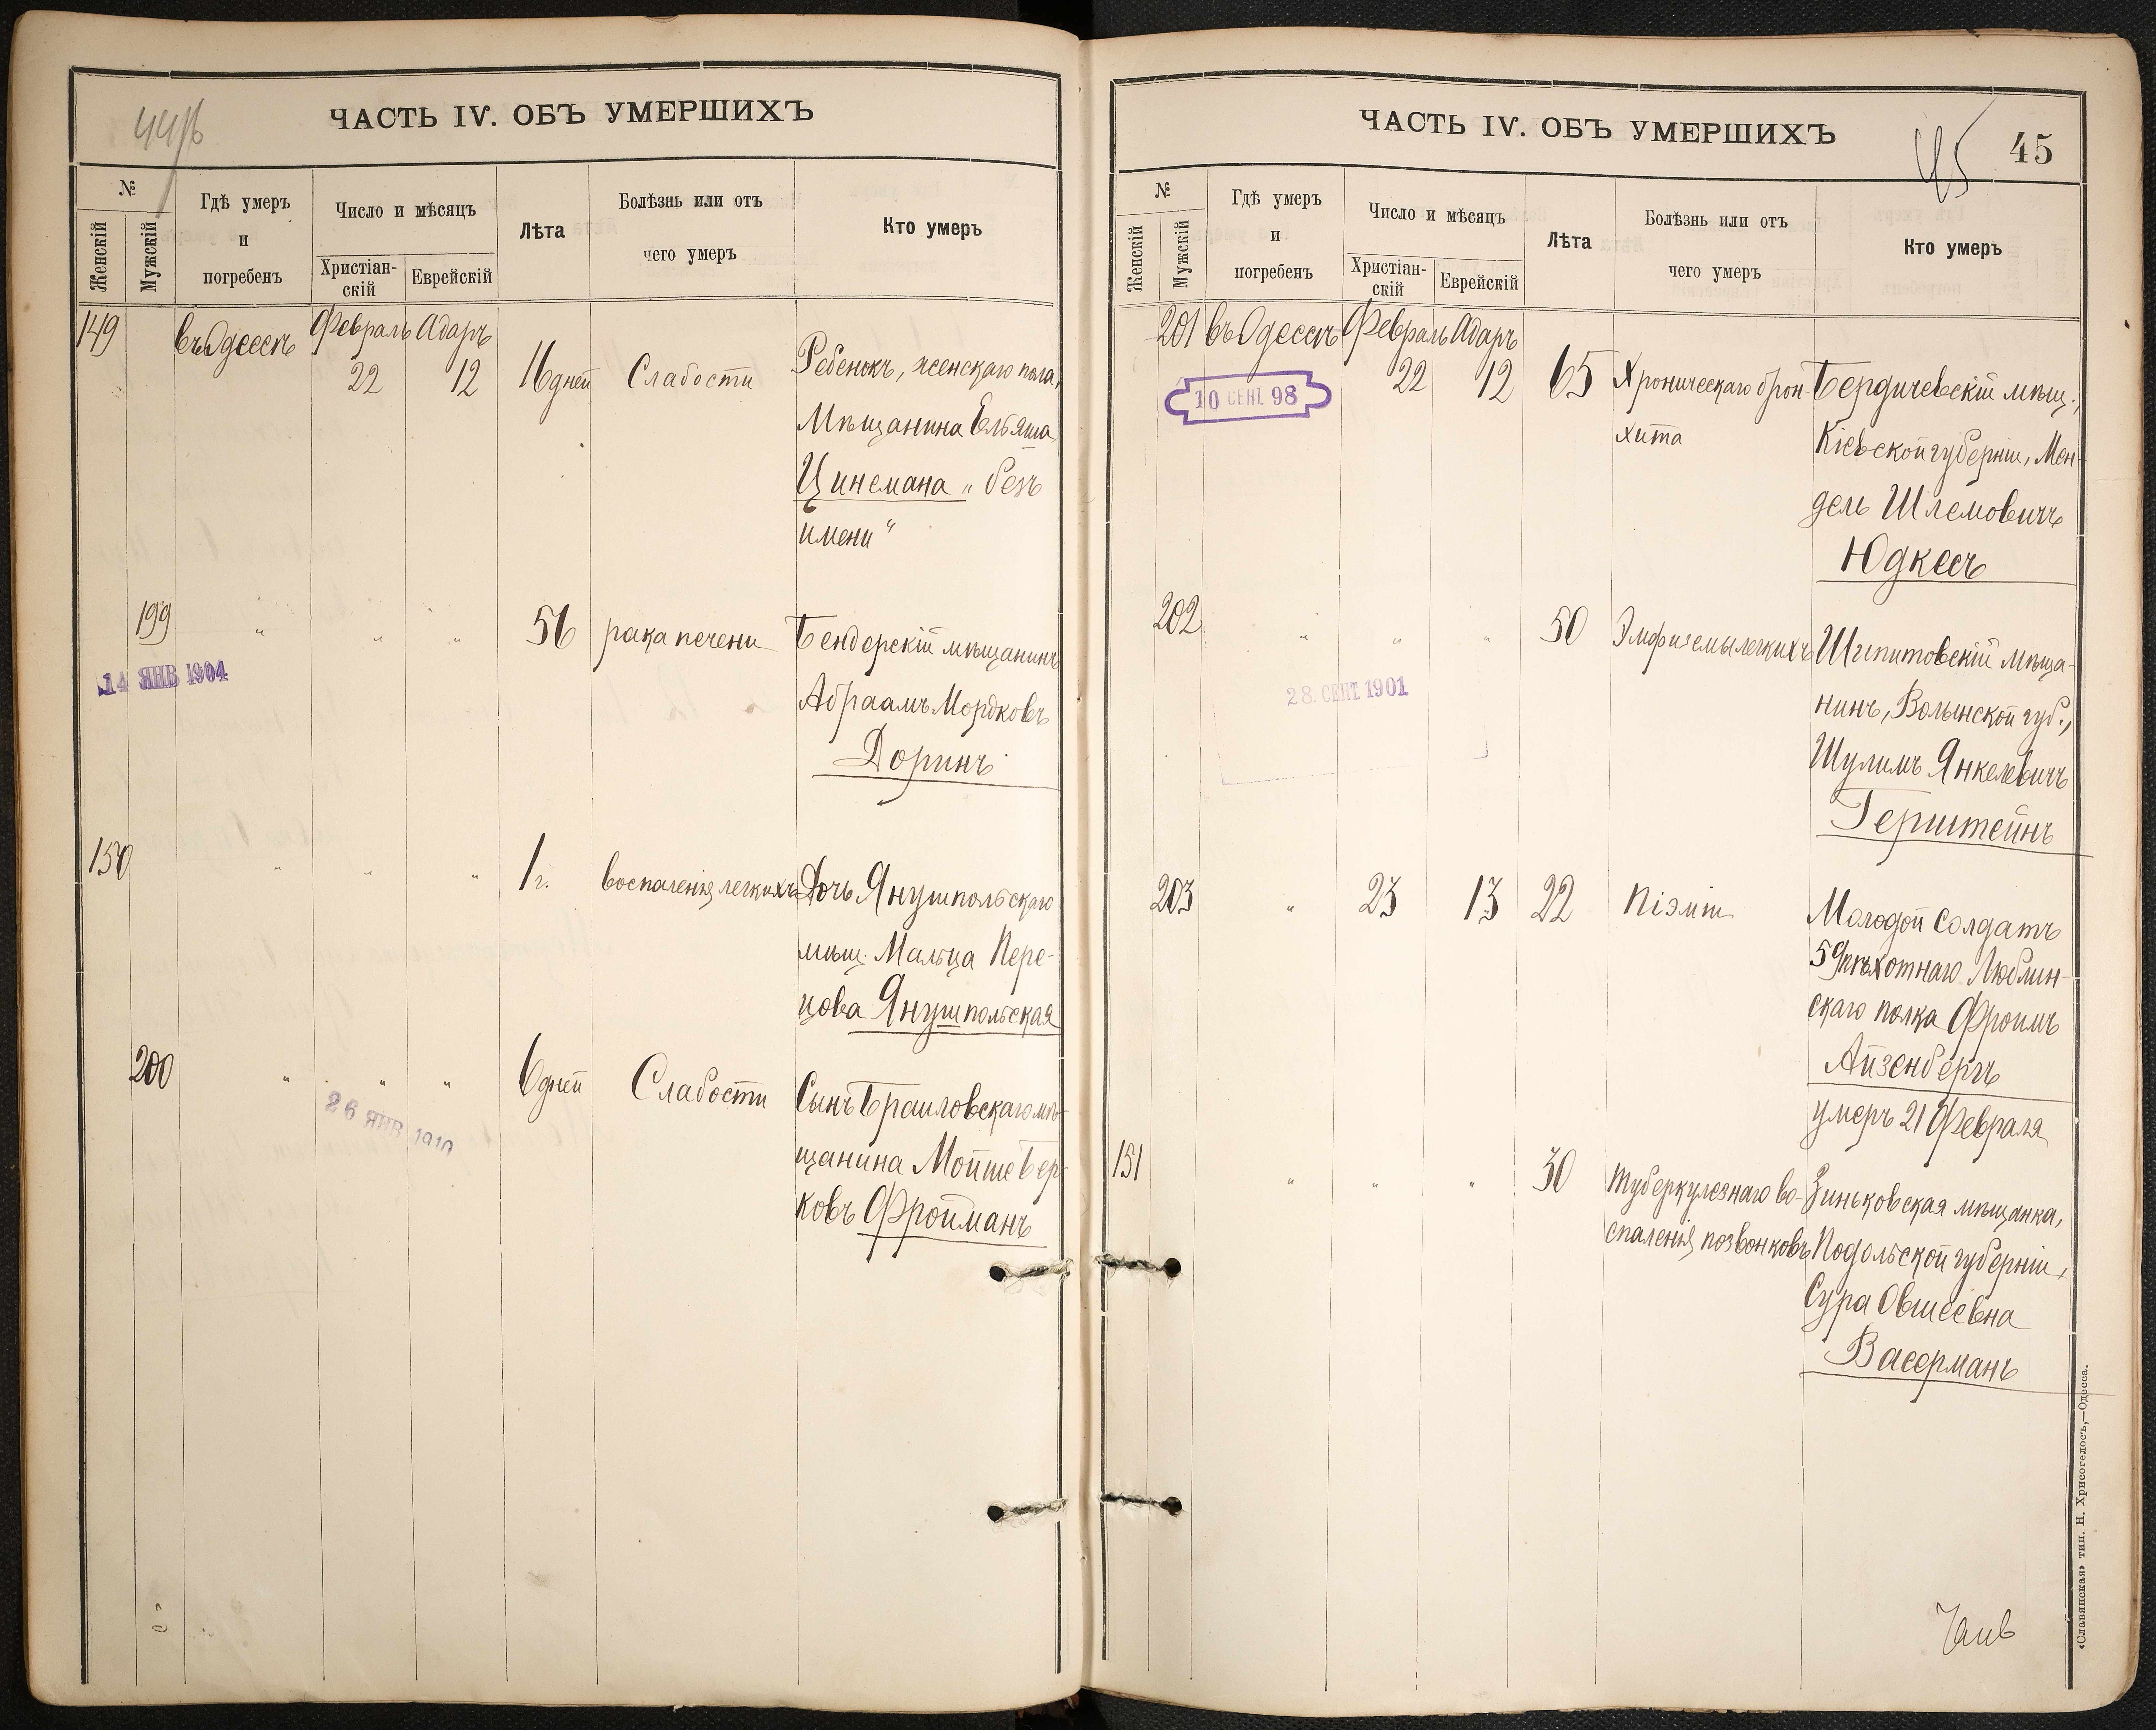 44/б
ЧАСТЬ IV. ОБЪ УМЕРШИХЪ
№
Женскій
Мужскій
Гдѣ умеръ
и
погребенъ
Число и мѣсяцъ
Христіан-
скій
Еврейскій
Лѣта
Болѣзнь или отъ
чего умеръ
Кто умеръ
149 въ Одессѣ Февраль Адаръ
22 12 16 дней Слабости Ребенокъ, женскаго пола,
Мѣщанина Ельяша
Цинемана „безъ
имени“
199 „ „ „ 56 рака печени Бендерскій мѣщанинъ
14 ЯНВ 1904
Абраамъ Мордковъ
Доринъ
150 „ „ „ 1 г. воспаленія легкихъ Дочь Янушпольскаго
мѣщ. Мальца Пере-
цова Янушпольская
200 „ „ „ 6 дней Слабости Сынъ Браиловскаго мѣ-
26 ЯНВ 1910
щанина Мойше Бер-
ковъ Фройманъ
ЧАСТЬ IV. ОБЪ УМЕРШИХЪ
45 45
№
Женскій
Мужскій
Гдѣ умеръ
и
погребенъ
Число и мѣсяцъ
Христіан-
скій
Еврейскій
Лѣта
Болѣзнь или отъ
чего умеръ
Кто умеръ
201 въ Одессѣ Февраль Адаръ
22 12 65 Хроническаго брон- Бердичевскій мѣщ.,
10 СЕНТ. 98
хита Кіевской губерніи, Мен-
дель Шлемовичъ
Юдкесъ
202 „ „ „ 50 Эмфиземы легкихъ Шепитовскій мѣща-
28. СЕНТ. 1901
нинъ, Волынской губ.,
Шулимъ Янкелевичъ
Герштейнъ
203 „ 23 13 22 Піэміи Молодой солдатъ
59 пѣхотнаго Люблин-
скаго полка Фроимъ
Айзенбергъ
умеръ 21 Февраля
151 „ „ „ 30 Туберкулезнаго во- Зиньковская мѣщанка,
спаленія позвонковъ Подольской губерніи,
Сура Овшеевна
Васерманъ
«Славянская» тип. Н. Хрисогелосъ,—Одесса.